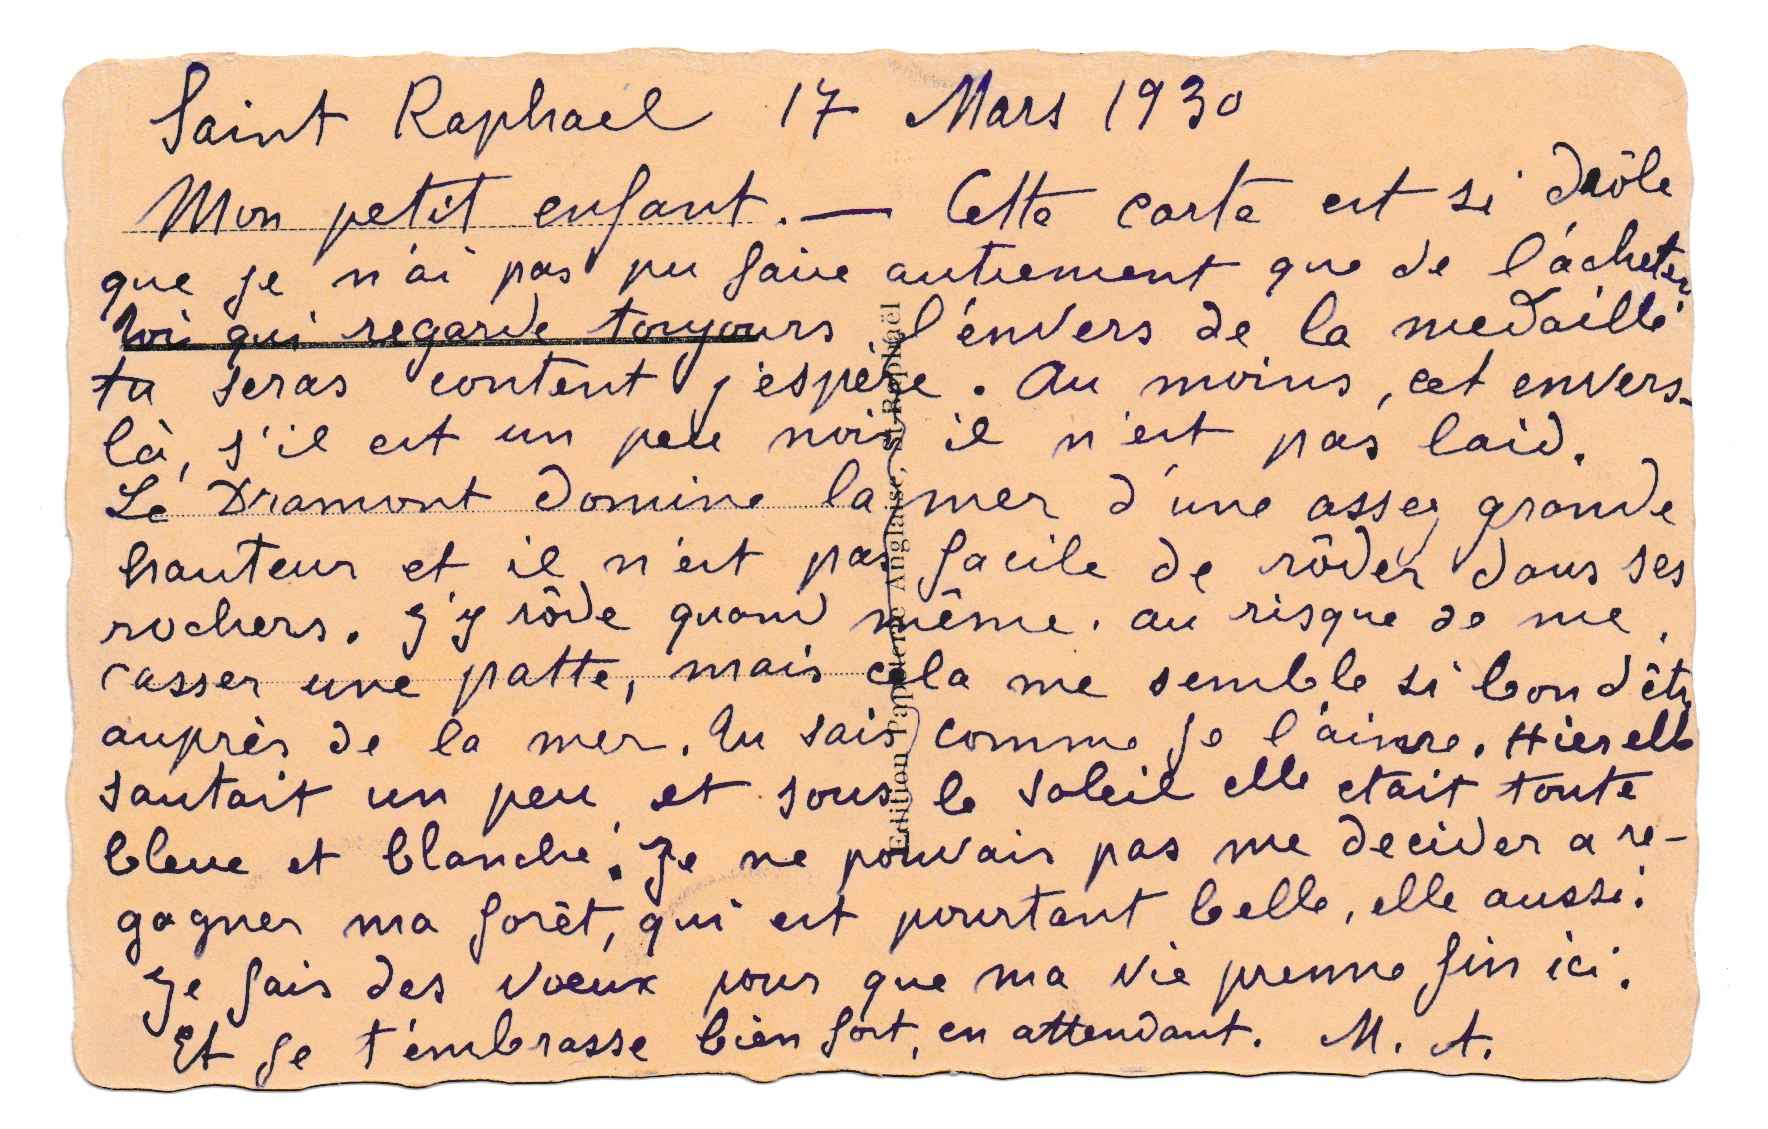 Saint Raphaël 17 Mars 1930
Mon petit enfant. — Cette carte est si drôle
que je n'ai pas pu faire autrement que de l'acheter
Toi qui regarde toujours l'envers de la medaille
tu seras content j'espère. Au moins, cet envers-
là, s'il est un peu noir il n'est pas laid.
Le Dramont domine la mer d'une assez grande
hauteur et il n'est pas facile de rôder dans ses
rochers. J'y rôde quand même. au risque de me
casser une patte, mais cela me semble si bon d'être
auprès de la mer. Tu sais comme je l'aime. Hier elle
sautait un peu et sous le soleil elle etait toute
bleue et blanche. Je ne pouvais pas me decider a re-
gagner ma forêt, qui est pourtant belle, elle aussi.
Je fais des voeux pour que ma vie prenne fin ici.
Et je t'embrasse bien fort, en attendant. M. A.
Edition Papeterie Anglaise, St-Raphaël